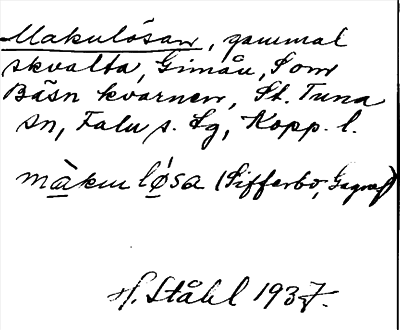 Makulösan, gammal
skvalta, Gimån, Som
Bäsn kvarnen, St. Tuna
sn, Falu s. Lg, Kopp. l.
màku lø̀sa (Sifferbo, Gagnef)
H. Ståhl 1937.